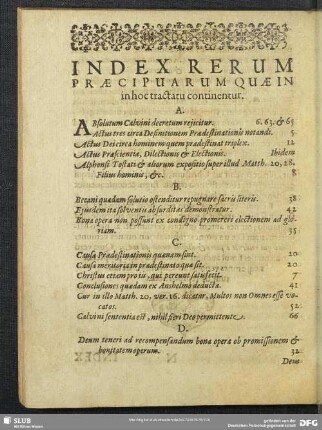 INDEX RERUM
PRÆCIPUARUM QUÆ IN
in hoc tractatu continentur.
A.
ABsolutum Calvini decretum rejicitur. 6. 63. & 65
Actus tres circa Definitionem Prædestinationis notandi. 5.
Actus Dei circa hominem quem prædestinat triplex. 12
Actus Præscientiæ, Dilectionis & Electionis. Ibidem
Alphonsi Tostati & aliorum expositio super illud Matth. 20, 28.
Filius hominis, &c. 8
B.
Becani quædam solutio ostenditur repugnare sacris literis. 38
Ejusdem ista solventis absurditas demonstratur. 42
Bona opera non possunt ex condigno promereri electionem ad glo-
riam. 35
C.
Causæ Prædestinationis quænam sint. 20.
Causa meritoria in prædestinato quæ sit. 20.
Christus etiam pro iis, qui pereunt satisfecit. 7
Conclusiones quædam ex Anshelmo deducta. 41
Cur in illo Matth. 20. ver. 16. dicatur, Multos non Omnes esse vo-
catos. 52
Calvini sententia est, nihil fieri Deo permittente. 66.
D.
Deum teneri ad recompensandum bona opera ob promissionem &
bonitatem operum. 32
Deus
SLUB
Wir führen Wissen.
gefördert von der
Deutschen Forschungsgemeinschaft
DFG